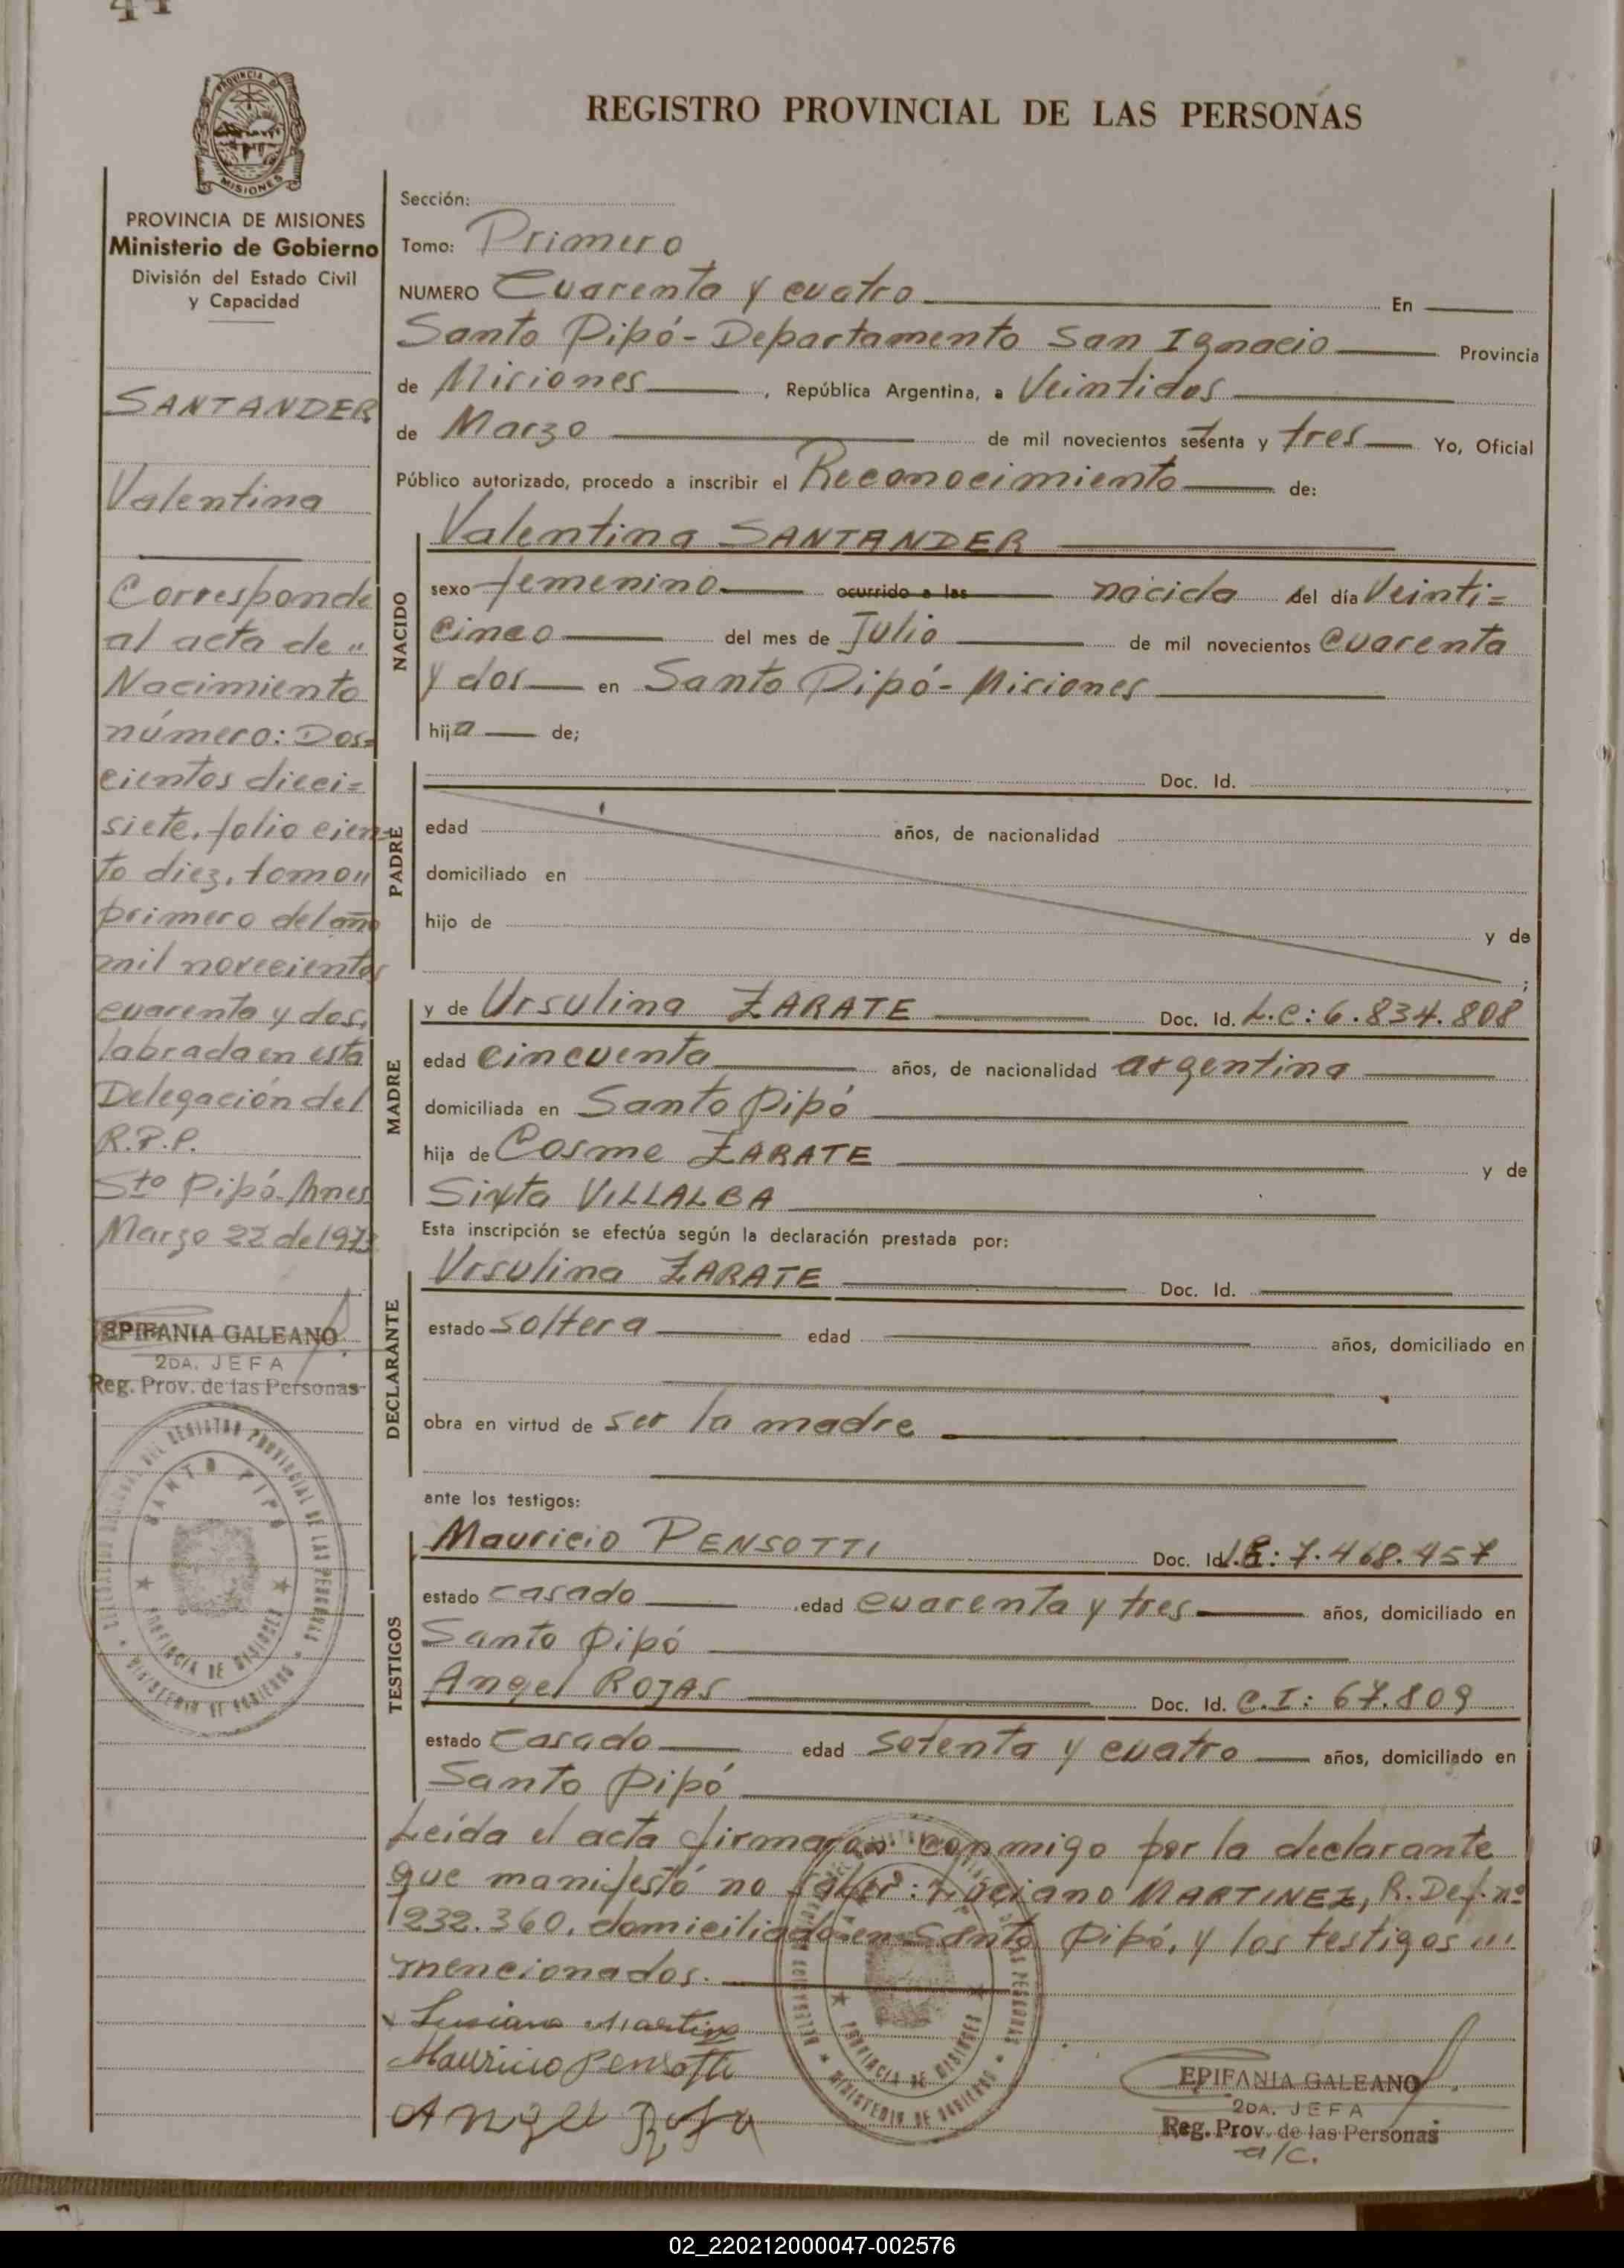 44
REGISTRO PROVINCIAL DE LAS PERSONAS
PROVINCIA DE MISIONES
Ministerio de Gobierno
División del Estado Civil
y Capacidad
SANTANDER
Valentina
Corresponde
al acta de "
Nacimiento
número: Dos=
cientos dieci=
siete, folio cien=
to diez, tomo "
primero del año
mil novecientos
cuarenta y dos,
labrada en esta
Delegación del
R.P.P.
Sto Pipó. Mnes
Marzo 22 de 1973
EPIFANIA GALEANO
2DA. JEFA
Reg. Prov. de las Personas
Sección:
Tomo: Primero
NUMERO Cuarenta y cuatro En
Santo Pipó - Departamento San Ignacio Provincia
de Misiones, República Argentina, a Veintidos
de Marzo de mil novecientos setenta y tres Yo, Oficial
Público autorizado, procedo a inscribir el Reconocimiento de:
NACIDO
Valentina SANTANDER
sexo femenino ocurrido a las nacida del día Veinti=
cinco del mes de Julio de mil novecientos Cuarenta
y dos en Santo Pipó - Misiones
hija de;
PADRE
Doc. Id.
edad años, de nacionalidad
domiciliado en
hijo de y de
;
MADRE
y de Ursulina ZARATE Doc. Id. L.C: 6.834.808
edad cincuenta años, de nacionalidad argentina
domiciliada en Santo Pipó
hija de Cosme ZARATE y de
Sixta VILLALBA
Esta inscripción se efectúa según la declaración prestada por:
DECLARANTE
Ursulina ZARATE Doc. Id.
estado soltera edad años, domiciliado en
obra en virtud de ser la madre
ante los testigos:
TESTIGOS
Mauricio PENSOTTI Doc. Id. L.E: 7.468.457
estado casado edad cuarenta y tres años, domiciliado en
Santo Pipó
Angel ROJAS Doc. Id. C.I: 67.809
estado Casado edad setenta y cuatro años, domiciliado en
Santo Pipó
Leida el acta firmaron conmigo por la declarante
que manifestó no saber: Luciano MARTINEZ, R. Def. nº
1232.360, domiciliado en Santo Pipó, y los testigos "'
mencionados.
Luciano Martinez
Mauricio Pensotti
Angel Roja
SANTO PIPO
PROVINCIA DE MISIONES
MINISTERIO DE GOBIERNO
EPIFANIA GALEANO
2DA. JEFA
Reg. Prov. de las Personas
a/c.
02_220212000047-002576